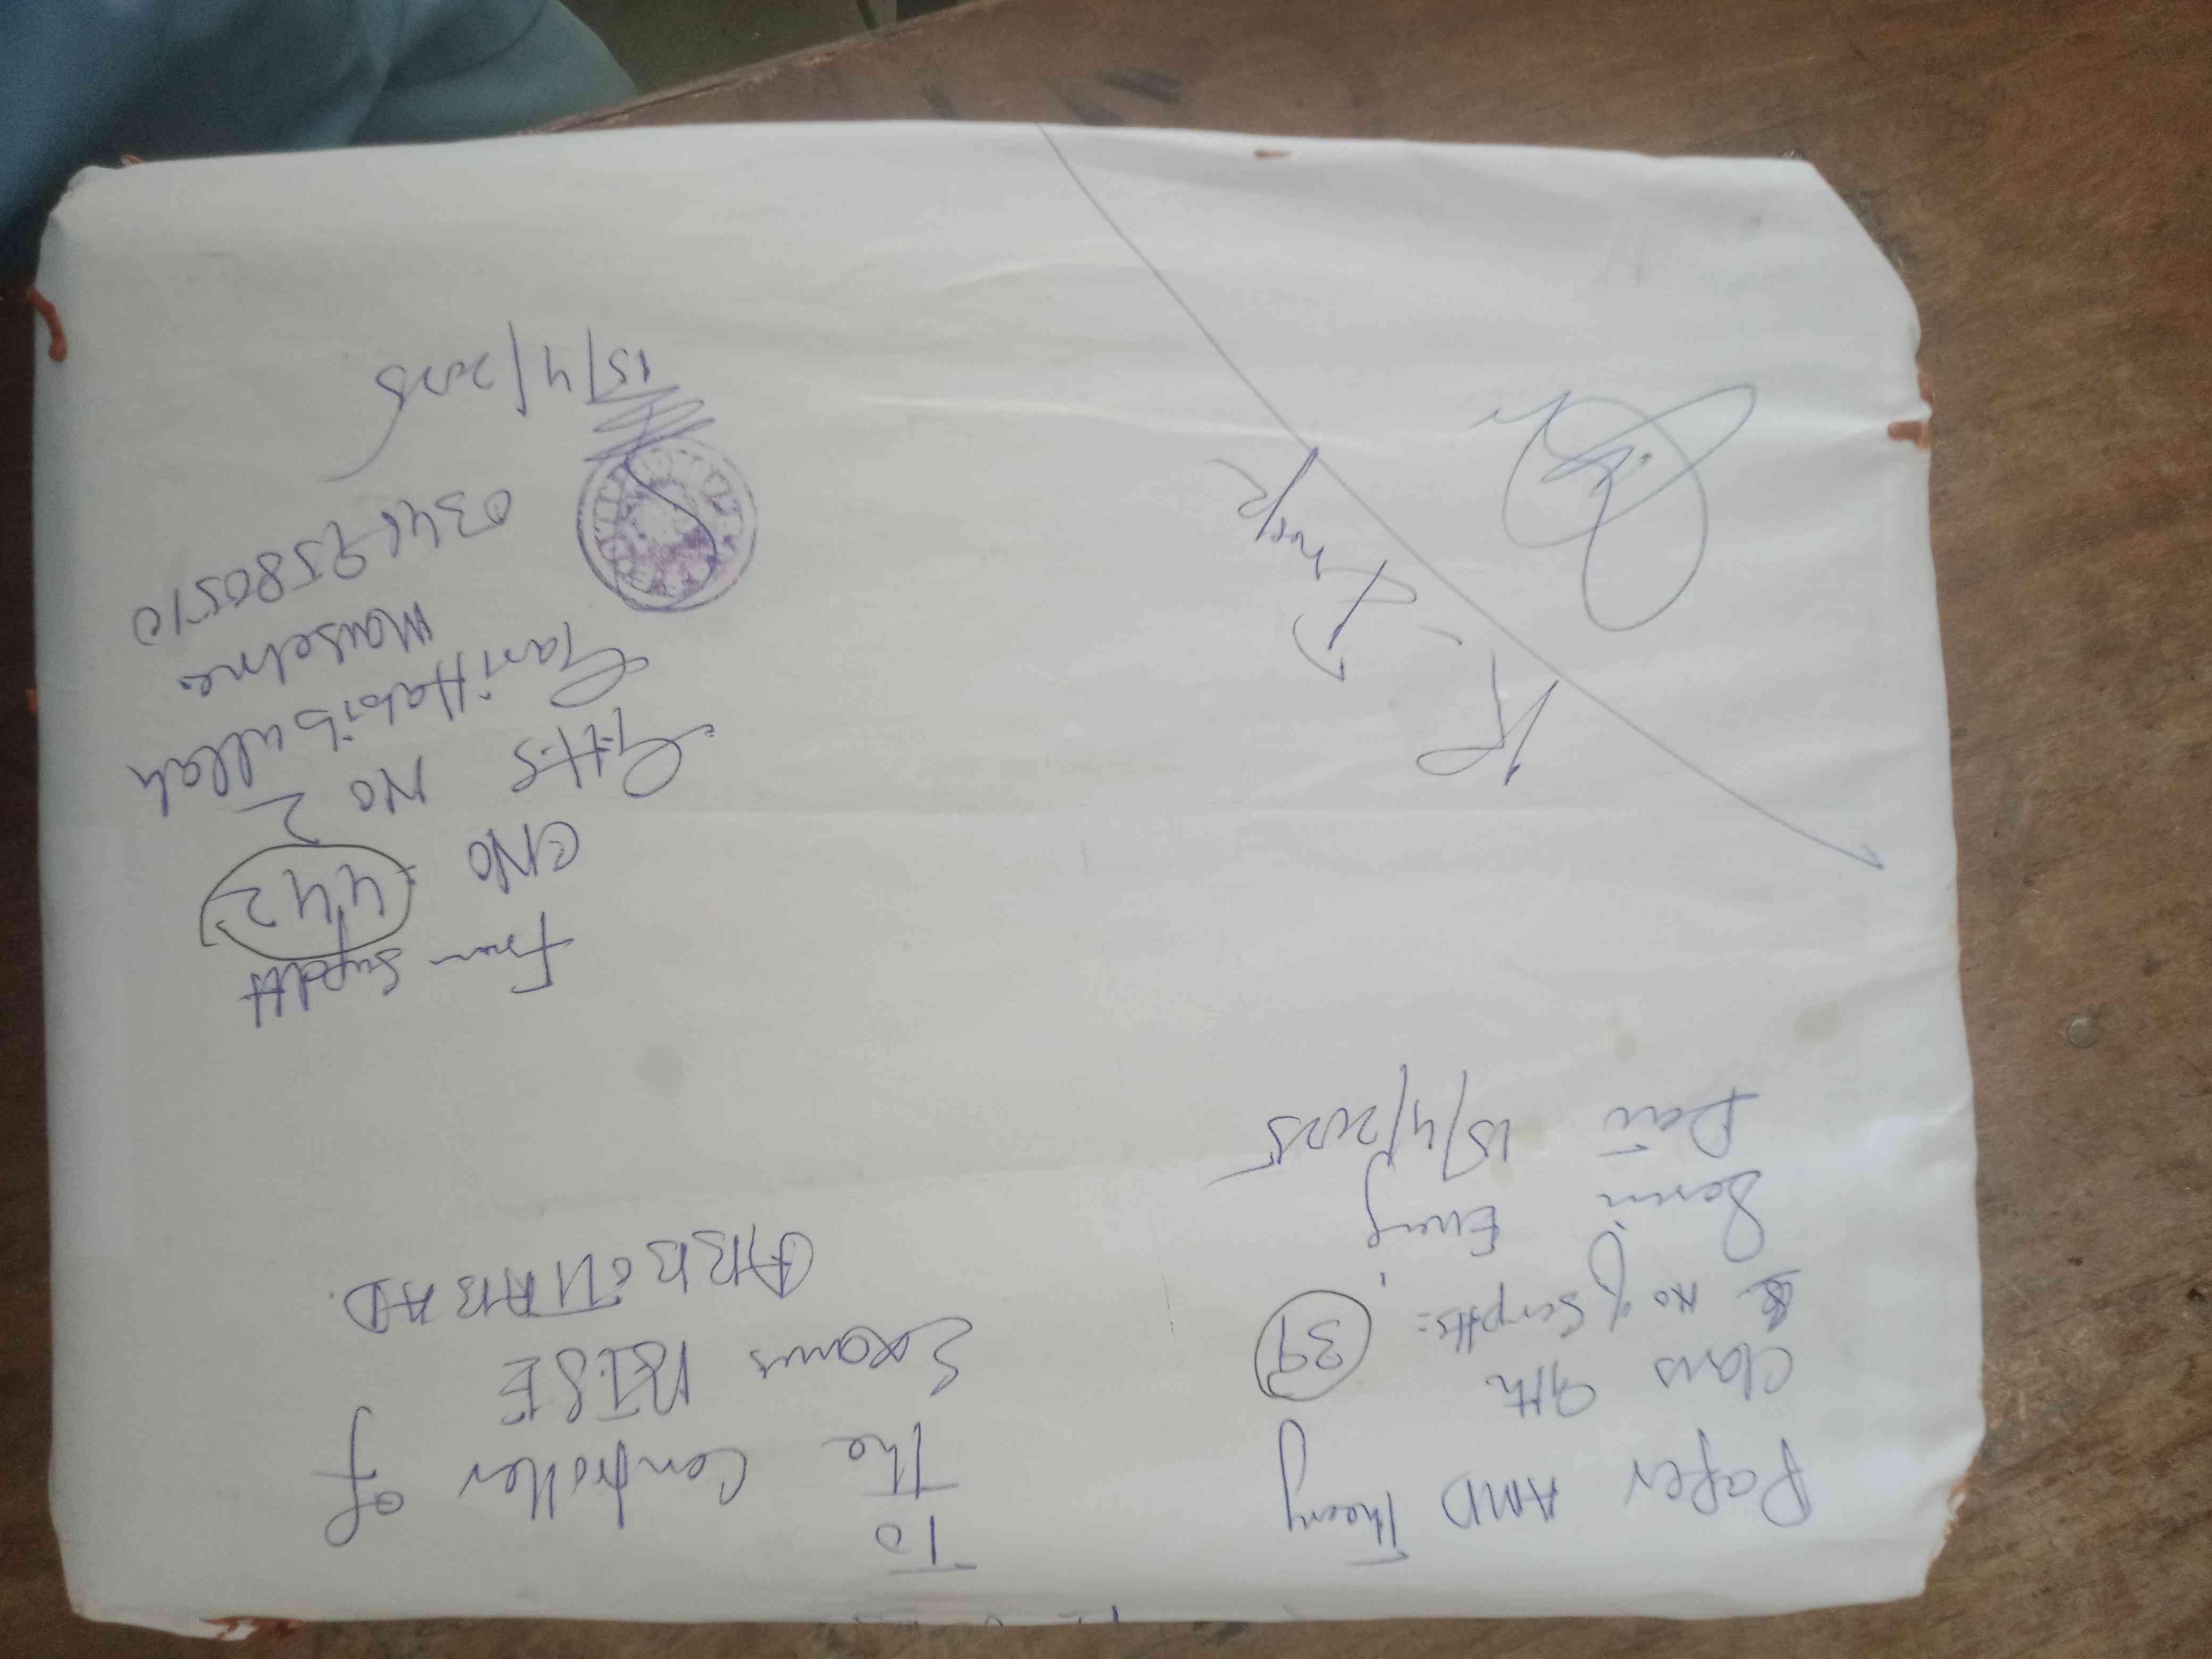 Paper AMD Theory
Class 9th
No of Scripts: 39
Sessn Eveng
Date 15/4/2025
To
The Controller of
Exams BISE
ABBOTTABAD.
From Supdtt
C No 442
GHS No 2
Gari Habibullah
Mansehra
03469580510
15/4/2025